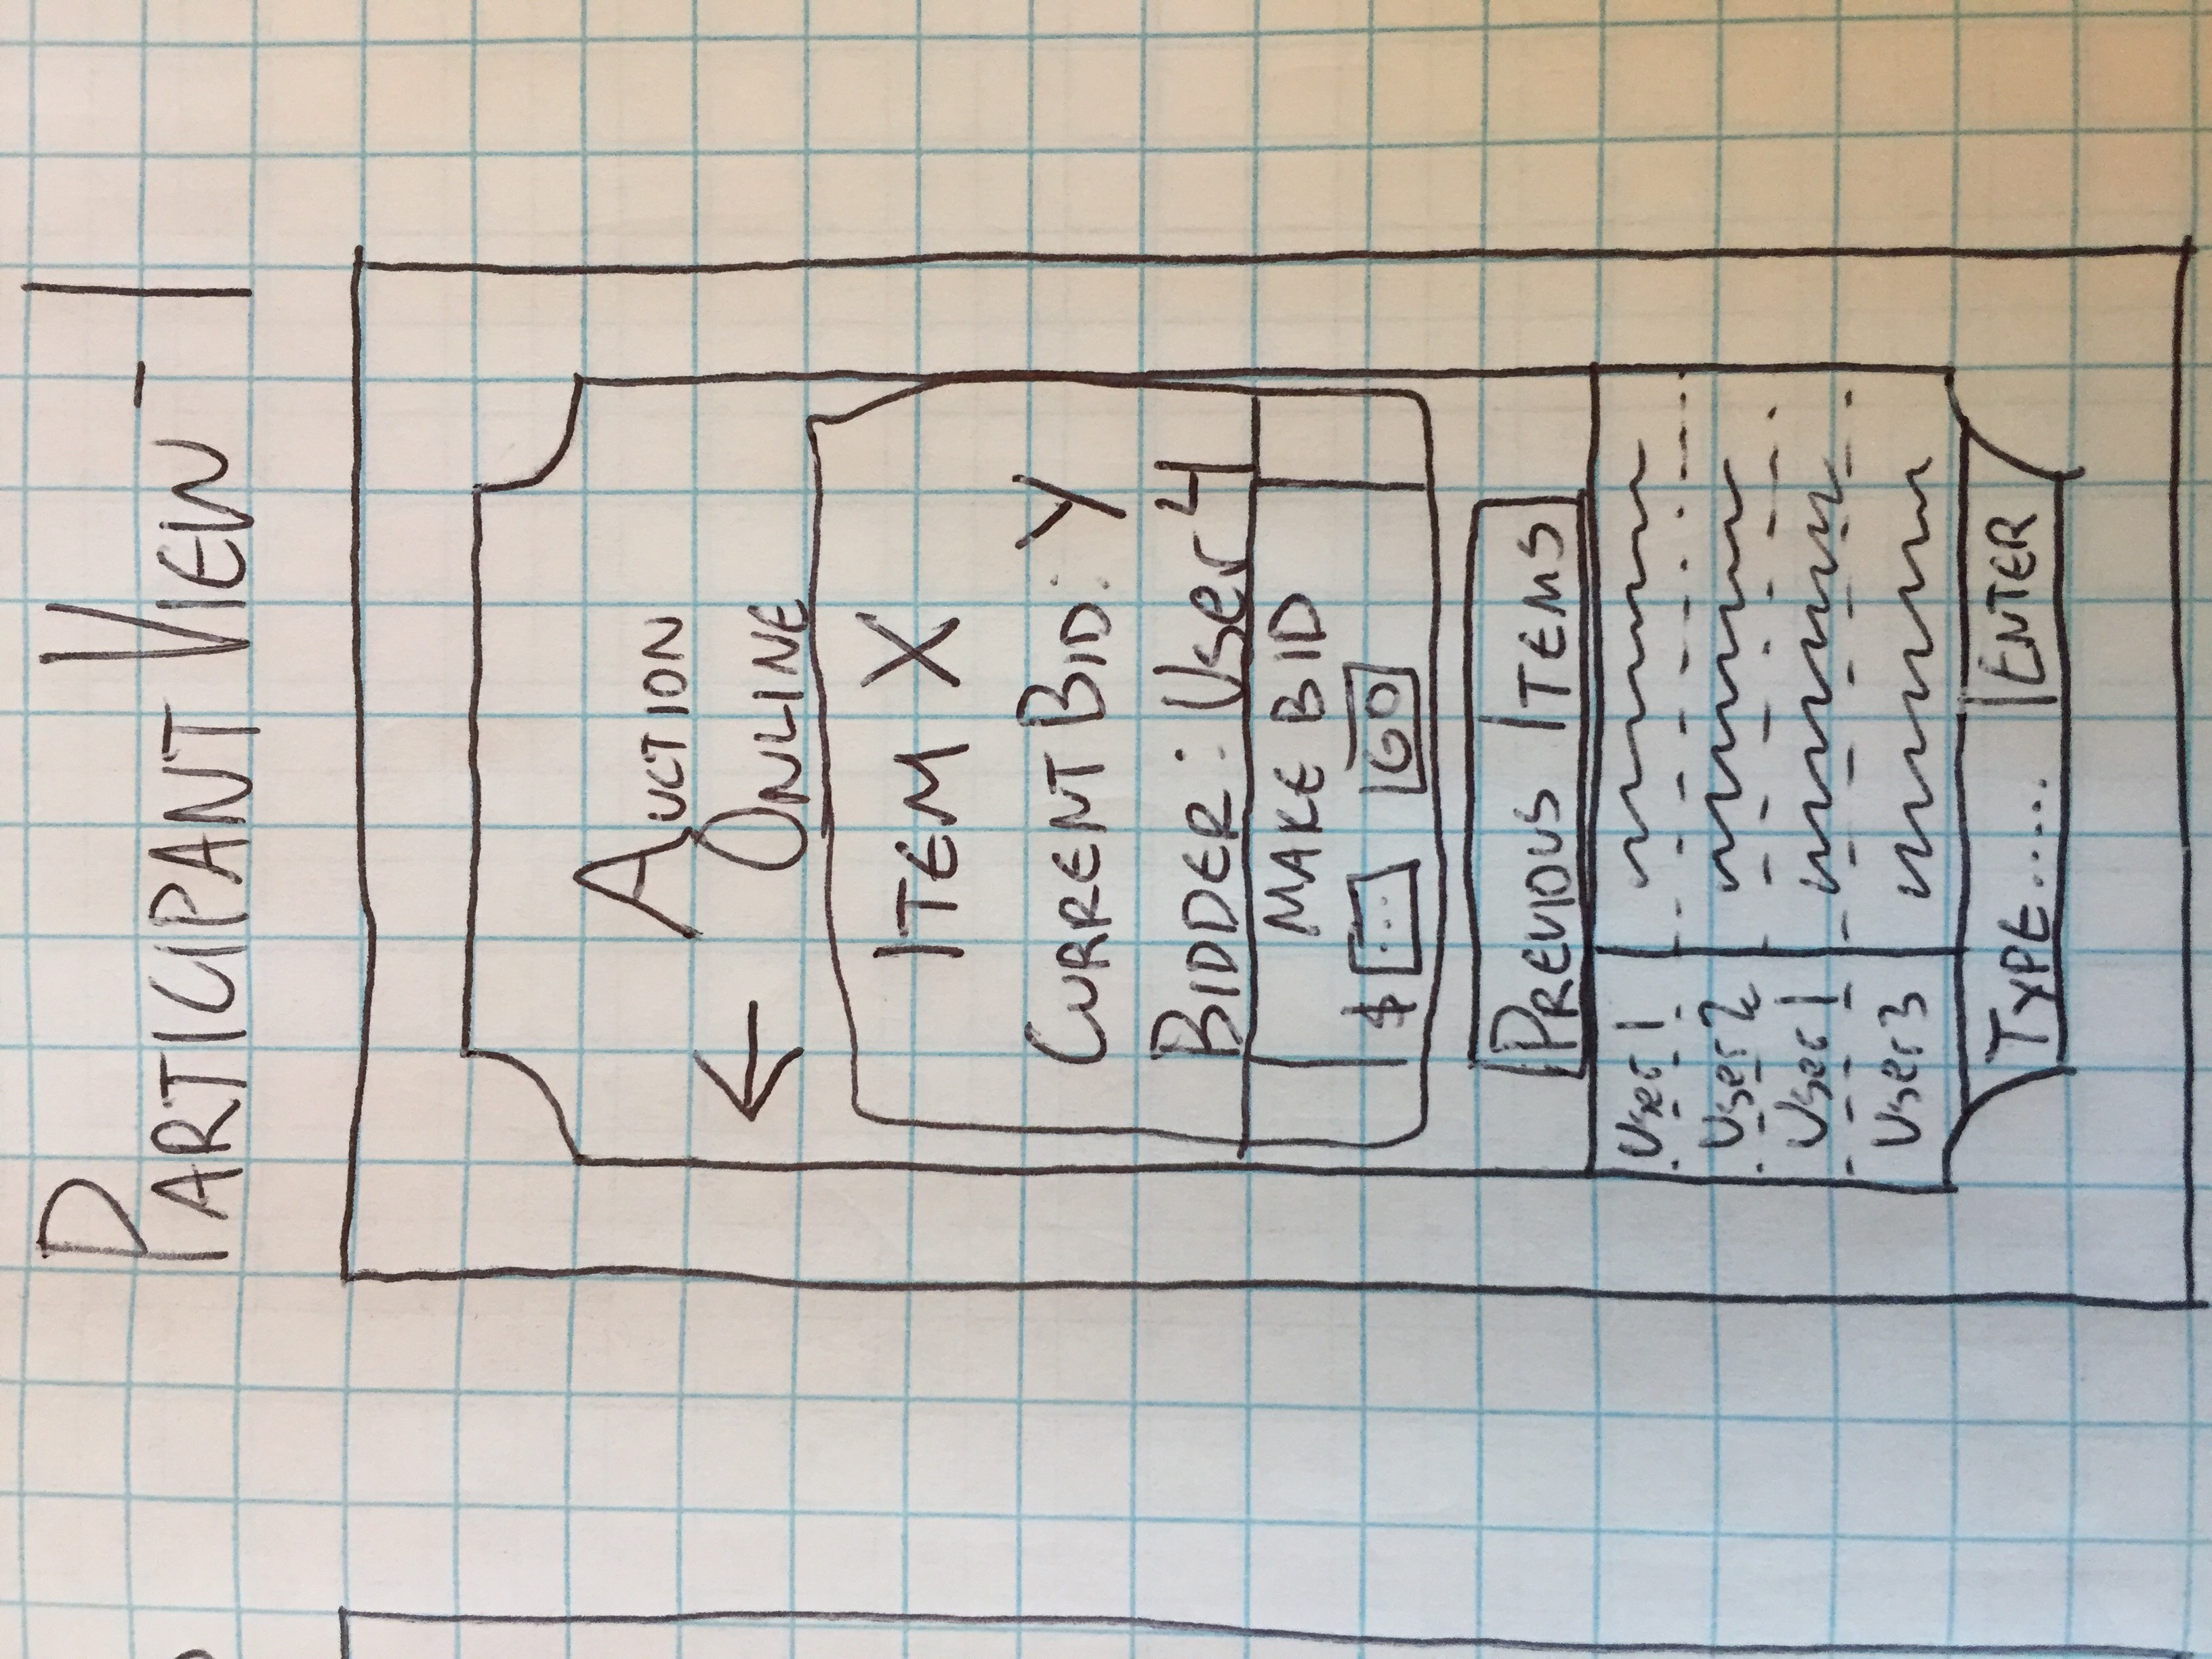 PARTICIPANT VIEW - 1
AUCTION
← ONLINE
ITEM X
CURRENT BID: Y
BIDDER: User 4
MAKE BID
$ ... GO
PREVIOUS ITEMS
User 1
User 2
User 1
User 3
TYPE..... ENTER